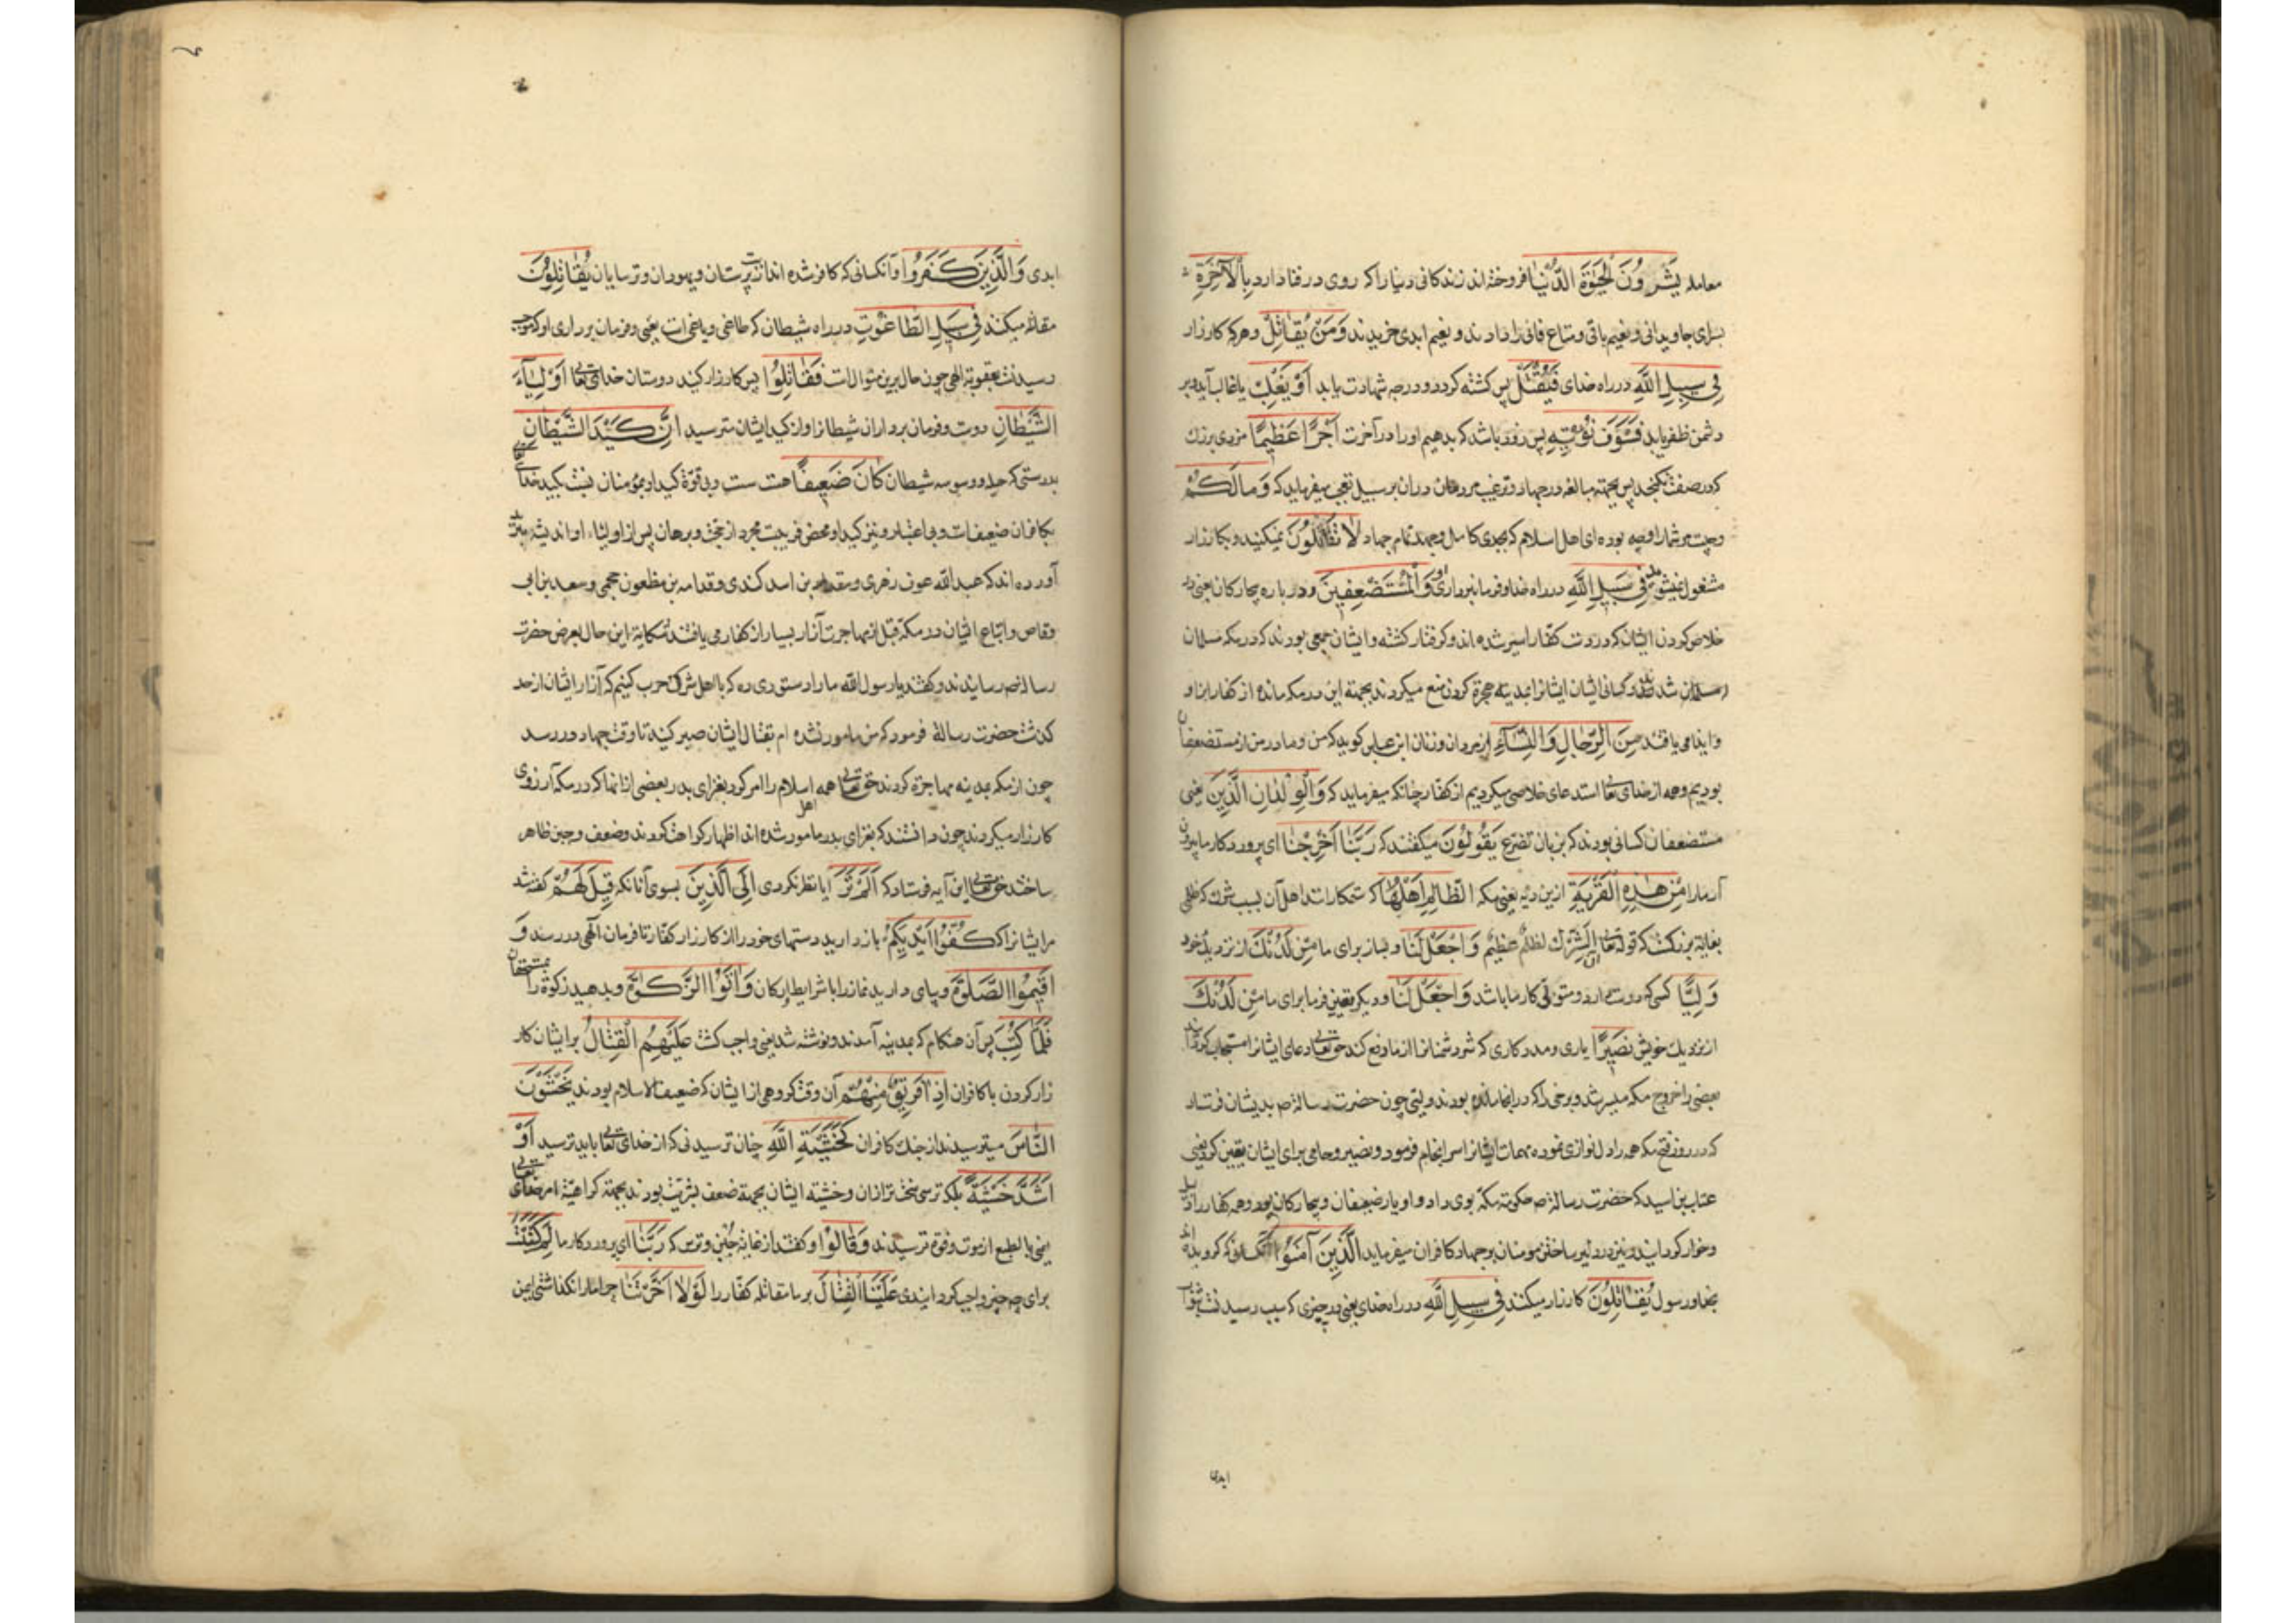 معامله يَشْرُونَ الْحَيٰوةَ الدُّنْيَا فروخته اند زندکانی دنیا را که روی در فنا دارد بِالْآخِرَةِ
بسرای جاویدانی و نعیم باقی و متاع فانی را دادند و نعیم ابدی خریدند وَمَنْ يُقَاتِلْ و هر که کارزار
فِي سَبِيلِ اللَّهِ در راه خدای فَيُقْتَلْ پس کشته کردد و درجه شهادت یابد أَوْ يَغْلِبْ یا غالب آید و بر
دشمن ظفر یابد فَسَوْفَ نُؤْتِيهِ پس زود باشد که بدهیم او را در آخرت أَجْرًا عَظِيمًا مزدی بزرك
که در صفت نکنجد پس بجهته مبالغه در جهاد و ترغیب مردمان در آن بر سبیل تعجب میفرماید که وَمَا لَكُمْ
و چیست مر شما را و چه بوده ای اهل اسلام که بجدی کامل و جهد تمام جهاد لَا تُقَاتِلُونَ نمیکنید و بکارزار
مشغول نمیشوید فِي سَبِيلِ اللَّهِ در راه خدا و فرمانبرداری او وَالْمُسْتَضْعَفِينَ و در باره بیچارکان یعنی در
خلاص کردن ایشان که در دست کفار اسیر شده اند و کرفتار کشته و ایشان جمعی بودند که در مکه مسلمان
مسلمان شدند و کسانی ایشان ایشانرا بمدینه هجرة کردن منع میکردند بجهته این در مکه مانده از کفار ایذا و
و ایذا می یافتند مِنَ الرِّجَالِ وَالنِّسَاءِ از مردان و زنان ابن عباس کوید که من و مادر من از مستضعفان
بودیم و همه از خدای تعالی استدعای خلاصی میکردیم از کفار چنانکه میفرماید که وَالْوِلْدَانِ الَّذِينَ یعنی
مستضعفان کسانی بودند که بزبان تضرع يَقُولُونَ میکفتند که رَبَّنَا أَخْرِجْنَا ای پروردکار ما بیرون
آر ما را مِنْ هٰذِهِ الْقَرْيَةِ ازین دیه یعنی مکه الظَّالِمِ أَهْلُهَا که ستمکار است اهل آن بسبب شرك که ظلمی
بغایة بزرکست که قوله تعالی ان الشِّرْكَ لظلمٌ عظیمٌ وَاجْعَلْ لَنَا و بساز برای ما مِنْ لَدُنْكَ از نزدیك خود
وَلِيًّا کسی که دوست دارد و متولی کار ما باشد وَاجْعَلْ لَنَا و دیکر تعیین فرما برای ما مِنْ لَدُنْكَ
از نزدیك خویش نَصِيرًا یاری و مددکاری که شر دشمنانرا از ما دفع کند حق تعالی دعای ایشانرا مستجاب کرد
بعضی را خروج مکه میسر شد و برخی را که در انجا مانده بودند ولیّی چون حضرت رسالة ص بدیشان فرستاد
که در روز فتح مکه همه را دلنوازی نموده مهمات ایشانرا سرانجام فرمود و نصیر و حامی برای ایشان تعیین کرد یعنی
عتاب بن اسید که حضرت رسالة ص حکومة مکه بوی داد و او یار ضعیفان و بیچارکان بود و همه کفار را
و خوار کردانید و نیز در دلیر ساختن مومنان بر جهاد کافران میفرماید الَّذِينَ آمَنُوا آنکسانی که کرویده اند
بخدا و رسول يُقَاتِلُونَ کارزار میکنند فِي سَبِيلِ اللَّهِ در راه خدای یعنی در چیزی که سبب رسیدنست بثواب
ابدی
ابدی وَالَّذِينَ كَفَرُوا و آنکسانی که کافر شده اند از بت پرستان و یهودان و ترسایان يُقَاتِلُونَ
مقاتله میکنند فِي سَبِيلِ الطَّاغُوتِ در راه شیطان که طاغی و یاغی است یعنی در فرمان برداری او که موجب
رسیدنست بعقوبة الهی چون حال برین منوال است فَقَاتِلُوا پس کارزار کنید دوستان خدای تعالی أَوْلِيَاءَ
الشَّيْطَانِ دوست و فرمان برداران شیطانرا و از کید ایشان مترسید إِنَّ كَيْدَ الشَّيْطَانِ
بدرستی که حیله و وسوسه شیطان كَانَ ضَعِيفًا هست سست و بی قوّة کید او بمؤمنان نسبت بکید خدای تعالی
بکافران ضعیفست و بی اعتبار و نیز کید او محض فریبست مجرد از حجت و برهان پس از اولیاء او اندیشه مبرید
آورده اند که عبدالله عوف زهری و مقداد بن اسد کندی و قدامه بن مظعون جمحی و سعد بن ابی
وقاص و اتباع ایشان در مکه قبل از مهاجرت آزار بسیار از کفار می یافتند شکایة این حال بعرض حضرت
رسالة ص رسانیدند و کفتند یا رسول الله ما را دستوری ده که با اهل شرك حرب کنیم که آزار ایشان از حد
کذشت حضرت رسالة فرمود که من مامور نشده ام بقتال ایشان صبر کنید تا وقت جهاد در رسد
چون از مکه بمدینه مهاجرة کردند حق تعالی همه اهل اسلام را امر کرد بغزای بدر بعضی از انها که در مکه آرزوی
کارزار میکردند چون دانستند که بغزای بدر مامور شده اند اظهار کراهت کردند و ضعف و جبن ظاهر
ساختند حق تعالی این آیه فرستاد که أَلَمْ تَرَ آیا نظر نکردی إِلَى الَّذِينَ بسوی آنانکه قِيلَ لَهُمْ کفته شد
مر ایشانرا که كُفُّوا أَيْدِيَكُمْ باز دارید دستهای خود را از کارزار کفار تا فرمان الهی در رسد وَ
أَقِيمُوا الصَّلٰوةَ و بپای دارید نماز را با شرایط و ارکان وَآتُوا الزَّكٰوةَ و بدهید زکوة را بمستحقان
فَلَمَّا كُتِبَ پس آن هنکام که بمدینه آمدند و نوشته شد یعنی واجب کشت عَلَيْهِمُ الْقِتَالُ بر ایشان کار
زار کردن با کافران إِذَا فَرِيقٌ مِنْهُمْ آن وقت کروهی از ایشان که ضعیف الاسلام بودند يَخْشَوْنَ
النَّاسَ میترسیدند از جنك کافران كَخَشْيَةِ اللَّهِ چنان ترسیدنی که از خدای تعالی باید ترسید أَوْ
أَشَدَّ خَشْيَةً بلکه ترسی سخت تر از ان و خشیة ایشان بجهته ضعف بشریت بود نه بجهته کراهیة امر خدای تعالی
یعنی بالطبع از موت و فوت ترسیدند وَقَالُوا و کفتند از غایة جُبن و ترس که رَبَّنَا ای پروردکار ما لِمَ كَتَبْتَ
برای چه چیز واجب کردانیدی عَلَيْنَا الْقِتَالَ بر ما مقاتله کفار را لَوْلَا أَخَّرْتَنَا چرا ما را نکذاشتی ایمن